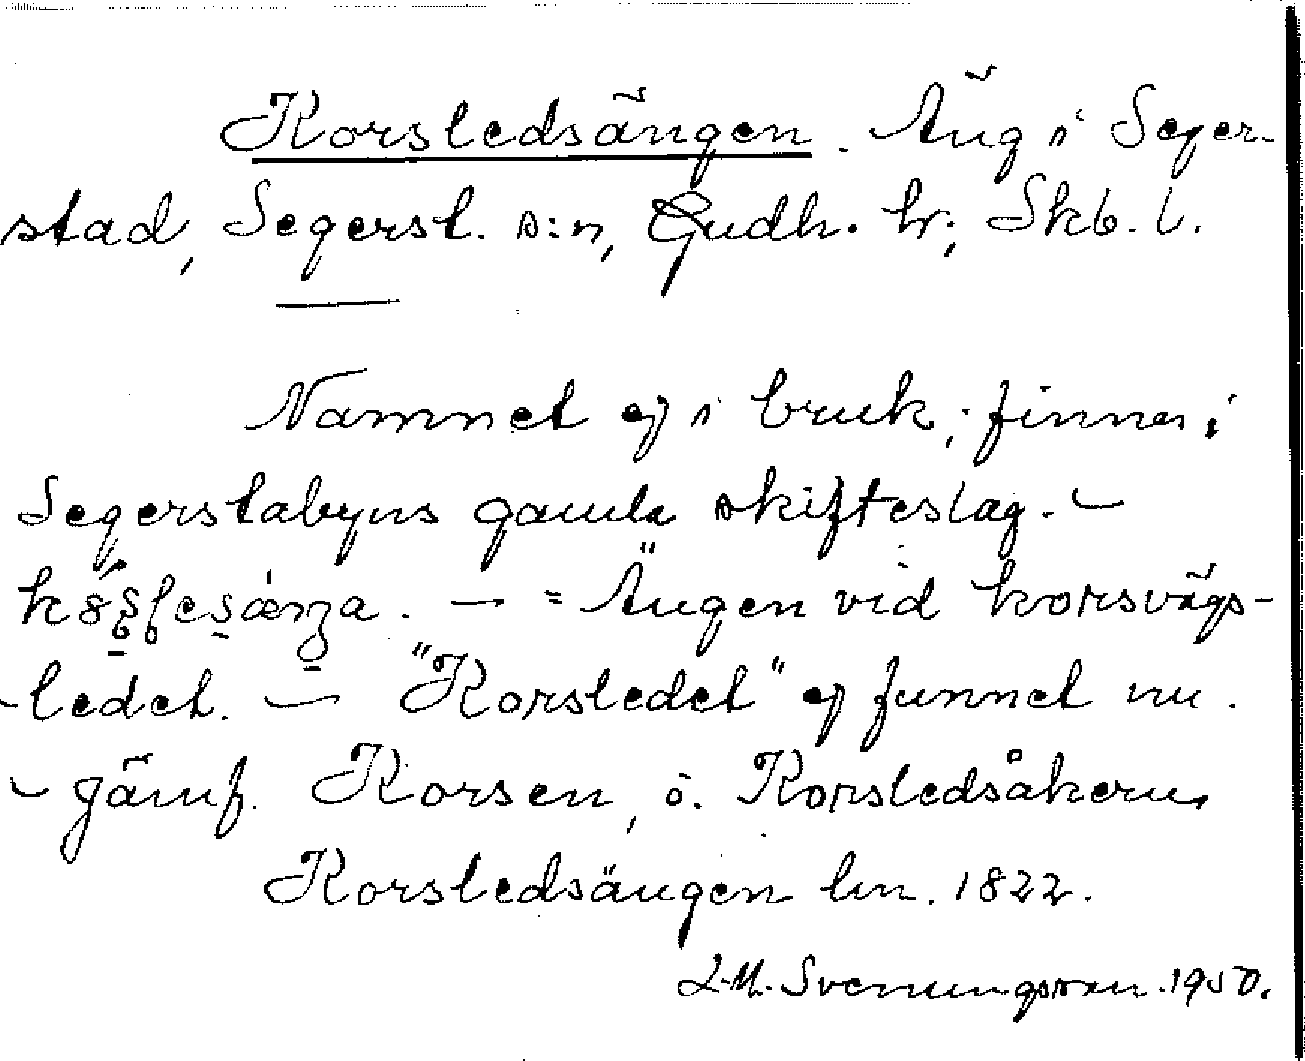 Korsledsängen. Äng i Seger-
stad, Segerst. s:n, Gudh. hr; Skb. l.
Namnet ej i bruk; finnes i
Segerstabyns gamla skifteslag. -
- = Ängen vid korsvägs-
-ledet. - "Korsledet" ej funnet nu.
- Jämf. Korsen, o. Korsledsåkern
Korsledsängen lm. 1822.
L.M. Svenungsson. 1950.